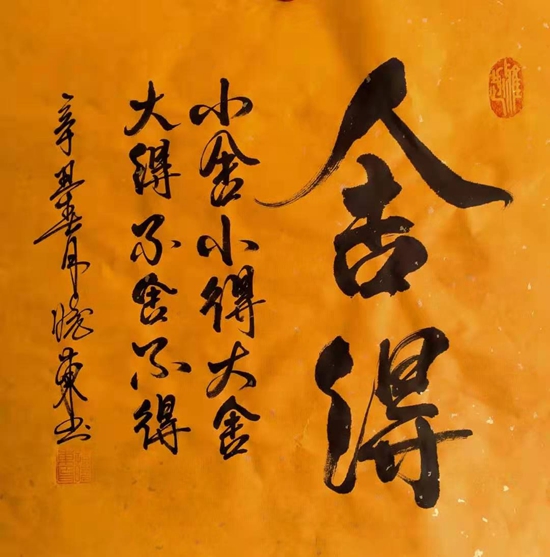 舍得
小舍小得大舍
大得不舍不得
辛丑春月 东书